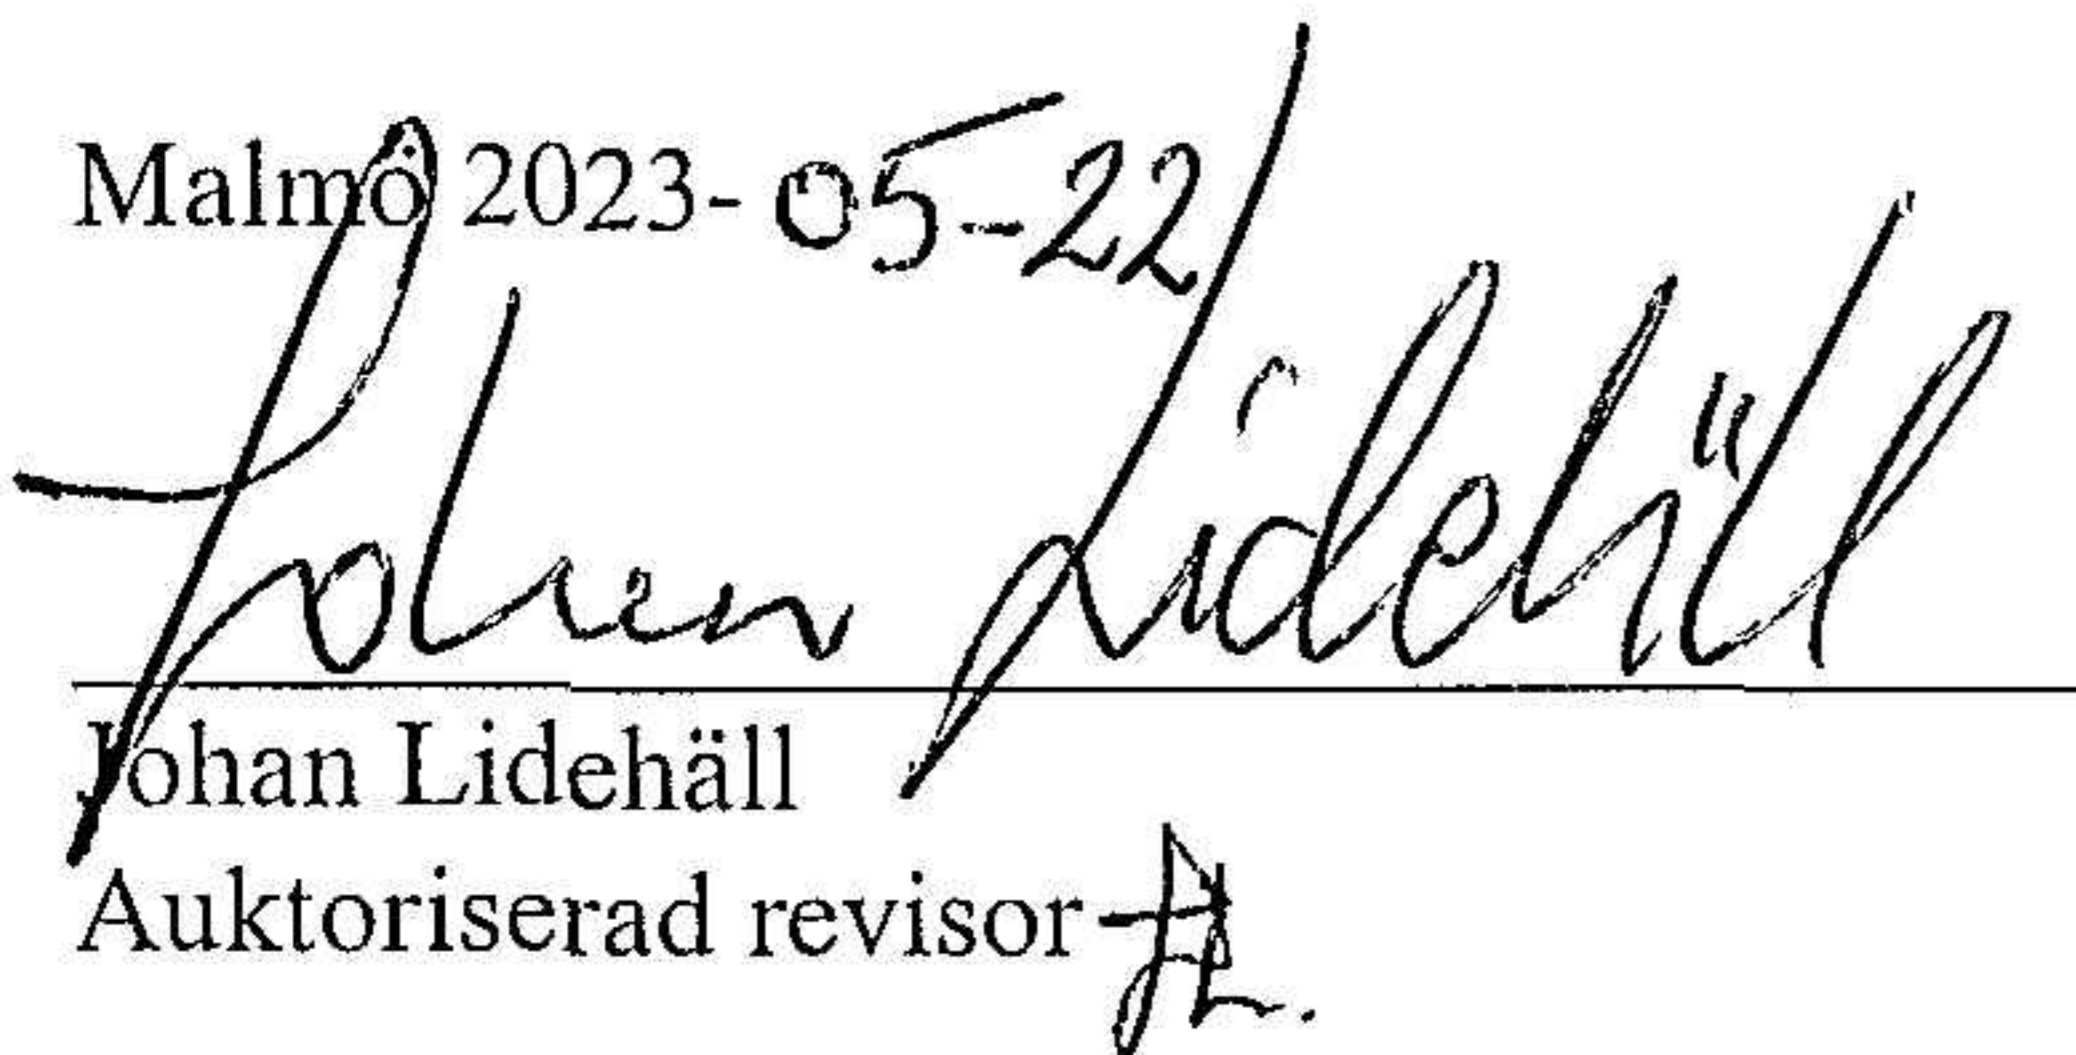 Malmö 2023-05-22
Johan Lidehäll
Johan Lidehäll
Auktoriserad revisor JL.